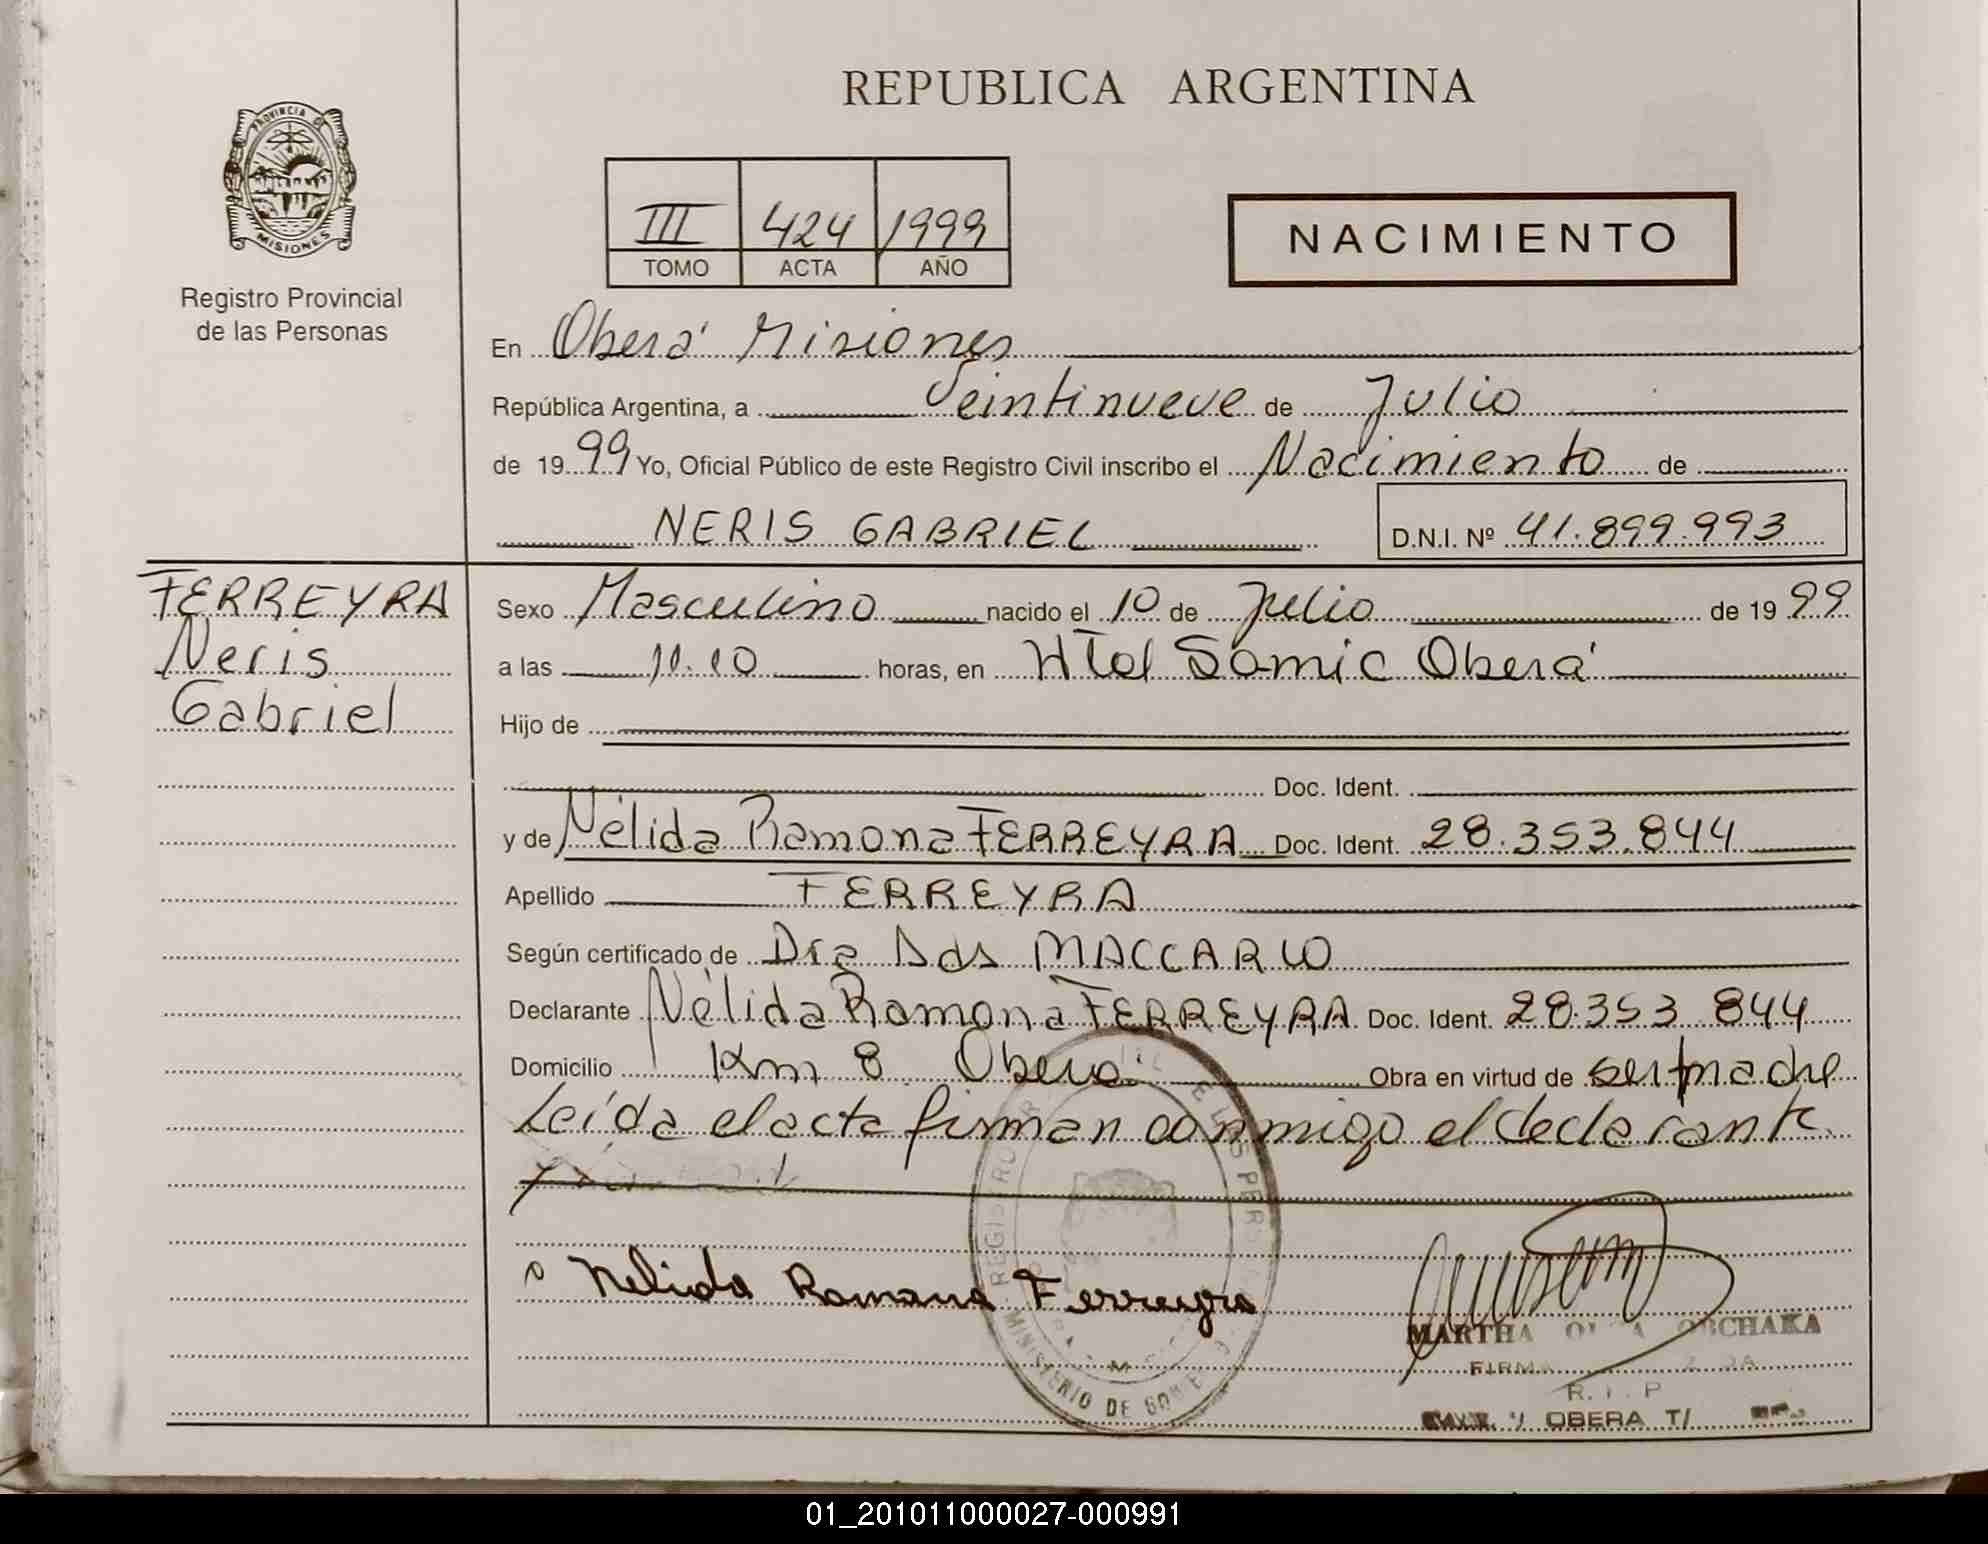 REPUBLICA ARGENTINA
PROVINCIA DE
MISIONES
Registro Provincial
de las Personas
III 424 1999
TOMO ACTA AÑO
NACIMIENTO
En Oberá Misiones
República Argentina, a Veintinueve de Julio
de 1999 Yo, Oficial Público de este Registro Civil inscribo el Nacimiento de
NERIS GABRIEL D.N.I. Nº 41.899.993
FERREYRA
Neris
Gabriel
Sexo Masculino nacido el 10 de Julio de 1999
a las horas, en Htal Samic Oberá
Hijo de
Doc. Ident.
y de Nélida Ramona FERREYRA Doc. Ident. 28.353.844
Apellido FERREYRA
Según certificado de Dra MACCARIO
Declarante Nélida Ramona FERREYRA Doc. Ident. 28.353 844
Domicilio Km 8 Oberá Obra en virtud de ser madre
Leída el acta firman conmigo el declarante
Nelida Ramona Ferreyra
MARTHA
MINISTERIO DE
OBERA
01_201011000027-000991